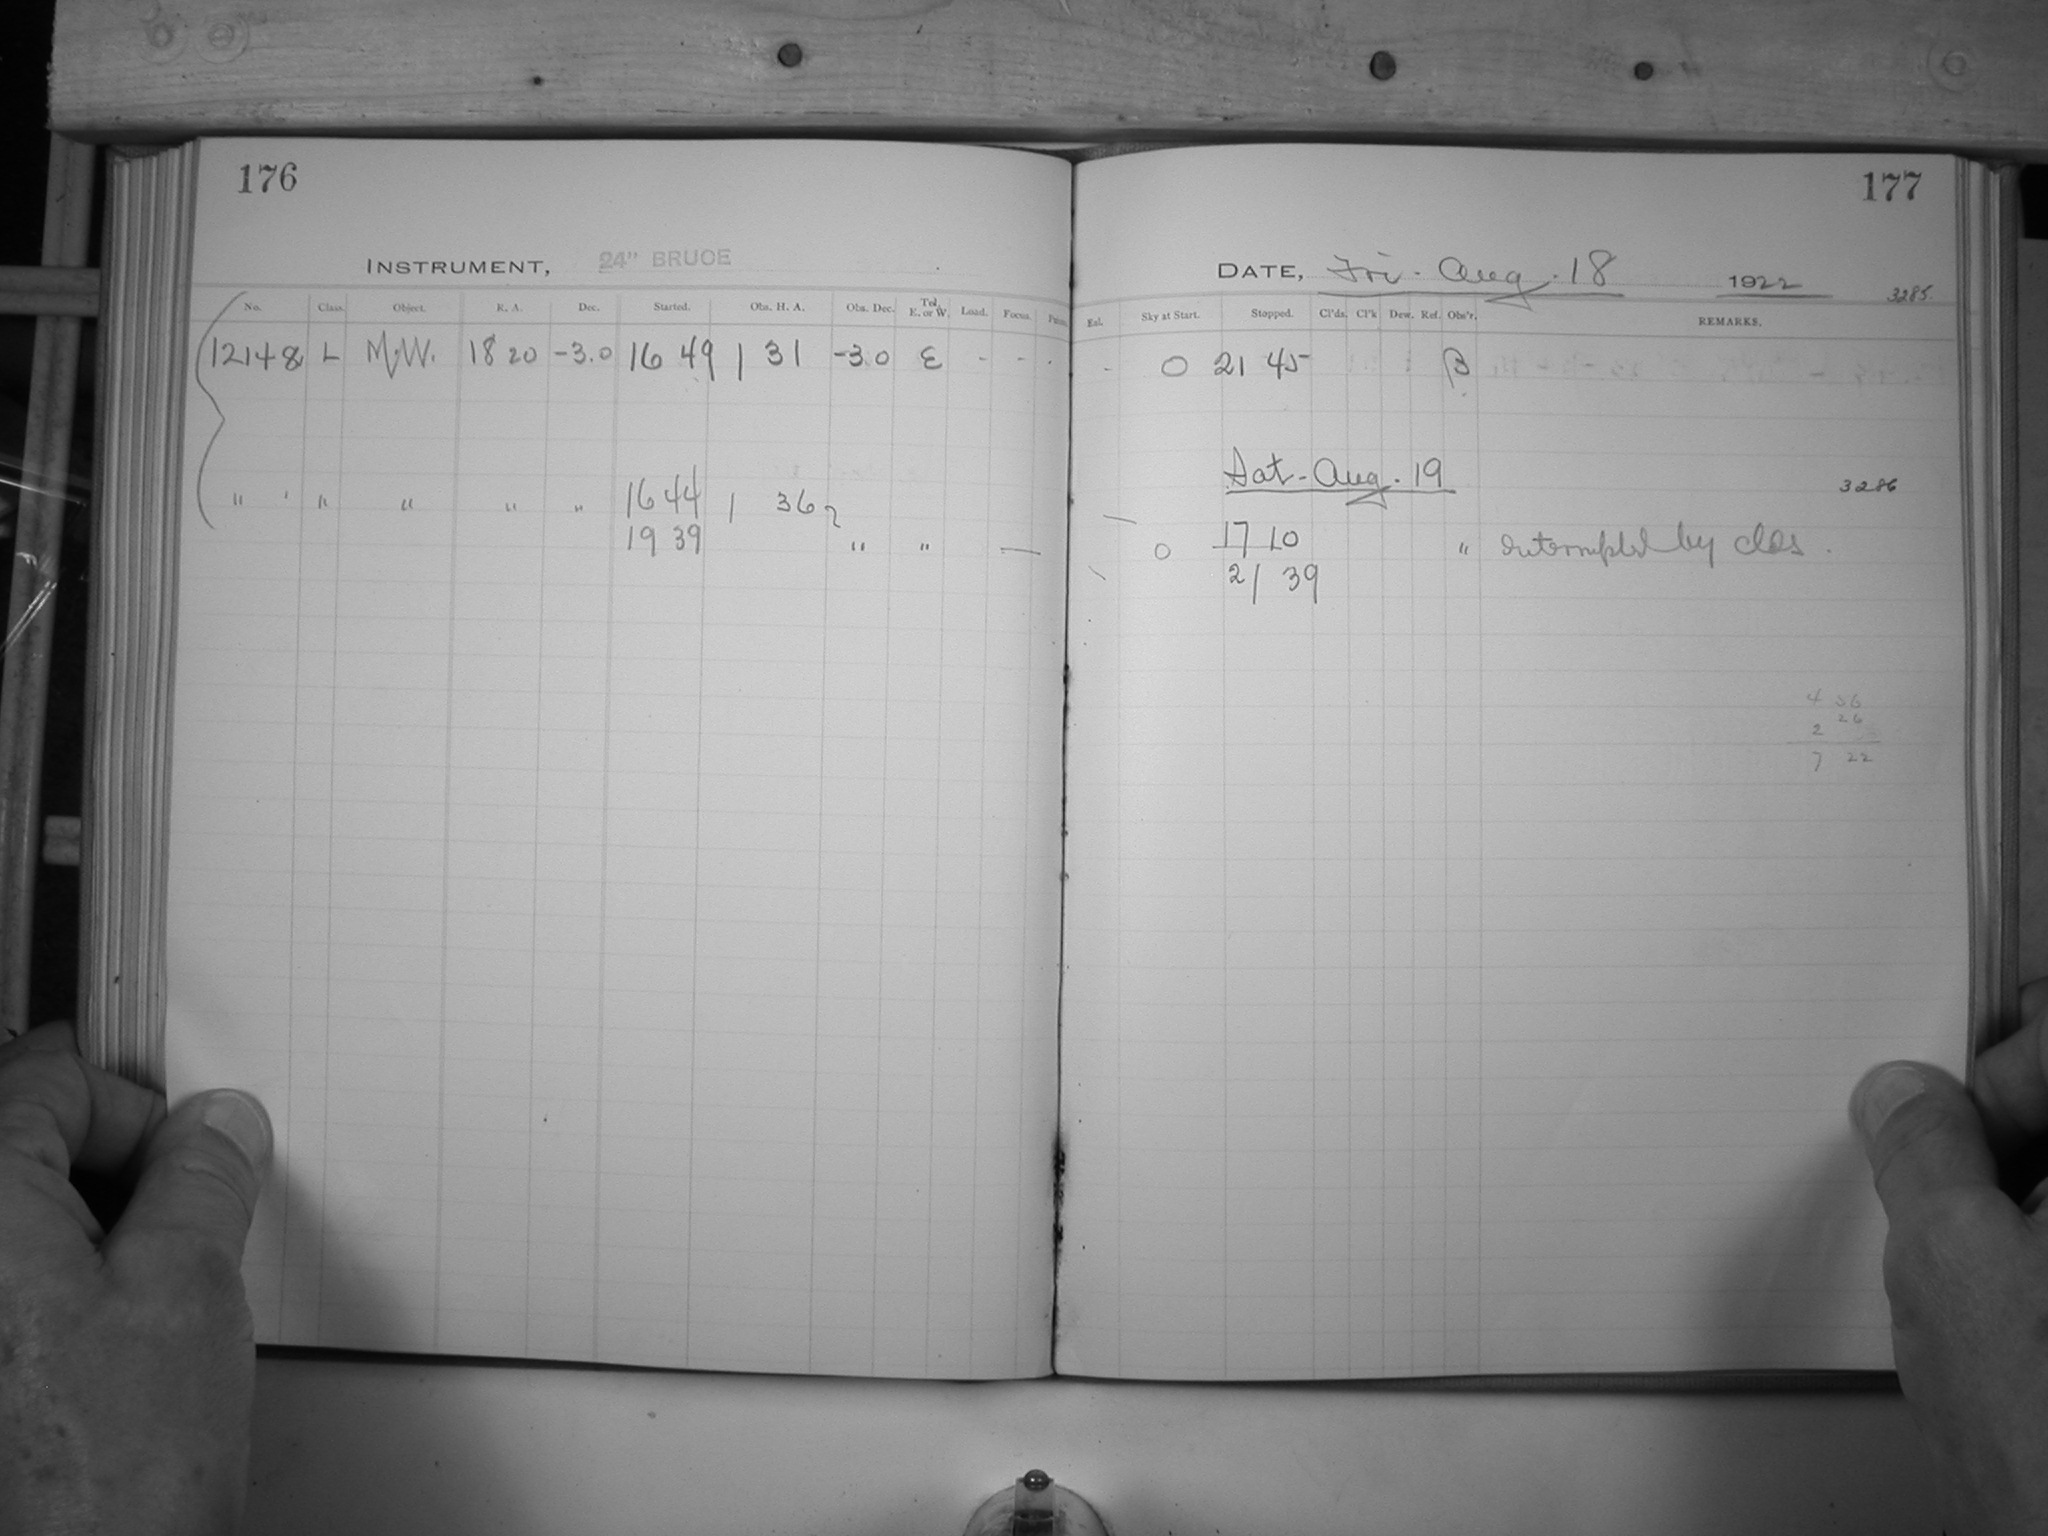 176
177
INSTRUMENT, 24" BRUCE
DATE, Fri. Aug. 18 1922
3285.
No. Class. Object. R. A. Dec. Started. Obs. H. A. Obs. Dec. Tel. E. or W. Load. Focus.
Sky at Start. Stopped. Cl'ds. Cl'k Dew. Ref. Obs'r. REMARKS.
12148 L M.W. 18 20 -3.0 16 49 1 31 -3.0 E - - .
- 0 21 45 B
Sat - Aug. 19
3286
" " " " " 16 44 1 36
19 39 " " —
0 17 10 " interrupted by clds.
21 39
4 56
2 26
7 22